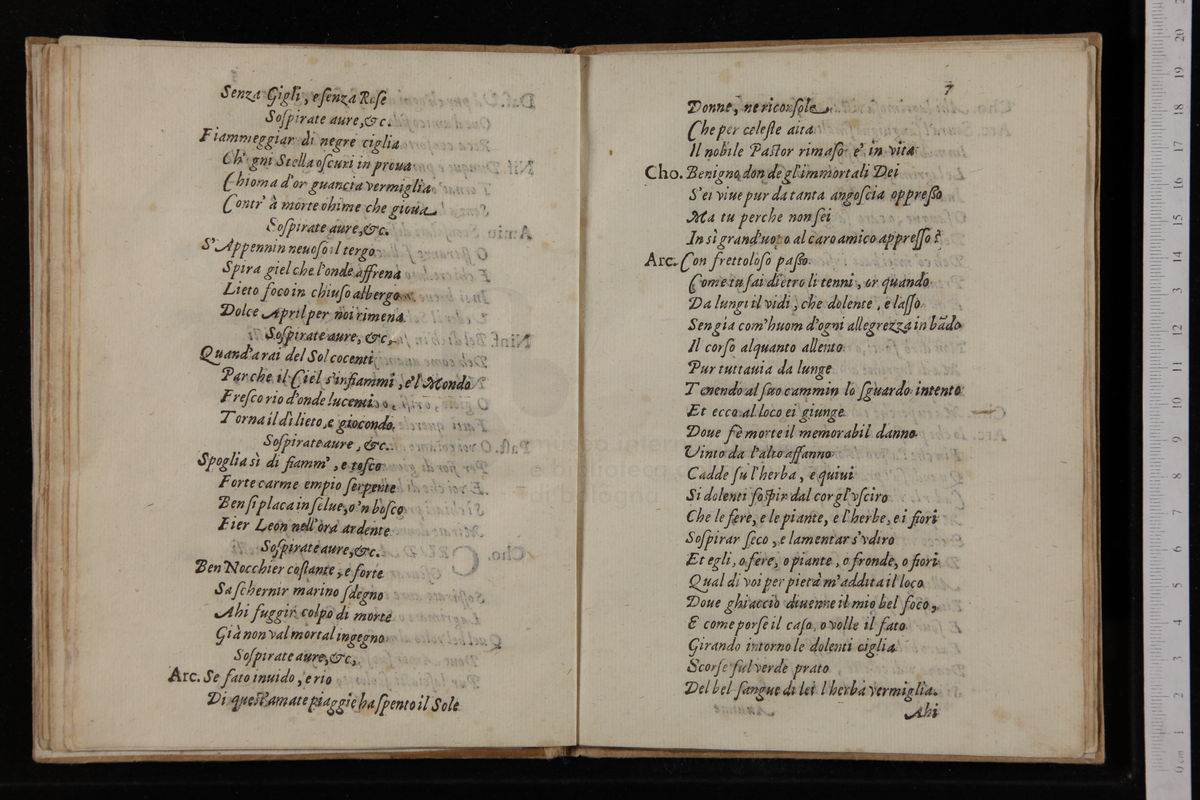 Senza Gigli, e senza Rose
Sospirate aure, &c.
Fiammeggiar di negre ciglia
Ch'ogni Stella oscuri in proua
Chioma d'or guancia vermiglia
Contr' à morte ohime che gioua
Sospirate aure, &c.
S'Appennin neuoso il tergo
Spira giel che l'onde affrena
Lieto foco in chiuso albergo
Dolce April per noi rimena
Sospirate aure, &c,
Quand'a rai del Sol cocenti
Par che il Ciel s'infiammi, e'l Mondo
Fresco rio d'onde lucenti
Torna il dì lieto, e giocondo.
Sospirate aure, &c.
Spoglia sì di fiamm', e tosco
Forte carme empio serpente
Ben si placa in selue, o'n bosco
Fier Leon nell'ora ardente
Sospirate aure, &c.
Ben Nocchier costante, e forte
Sa schernir marino sdegno
Ahi fuggir colpo di morte
Già non val mortal ingegno
Sospirate aure, &c,
Arc. Se fato inuido, e rio
Di quest'amate piaggie ha spento il Sole
7
Donne, ne riconsole
Che per celeste aita
Il nobile Pastor rimaso e' in vita
Cho. Benigno don de gl'immortali Dei
S'ei viue pur da tanta angoscia oppresso
Ma tu perche non sei
In sì grand'uopo al caro amico appresso?
Arc. Con frettoloso passo
Come tu sai dietro li tenni, or quando
Da lungi il vidi, che dolente, e lasso
Sen gia com'huom d'ogni allegrezza in bādo
Il corso alquanto allento
Pur tuttauia da lunge
Tenendo al suo cammin lo sguardo intento
Et ecco al loco ei giunge
Doue fè morte il memorabil danno
Vinto da l'alto affanno
Cadde sù l'herba, e quiui
Si dolenti sospir dal cor gl'vsciro
Che le fere, e le piante, e l'herbe, e i fiori
Sospirar seco, e lamentar s'vdiro
Et egli, o fere, o piante, o fronde, o fiori
Qual di voi per pietà m'addita il loco
Doue ghiaccio diuenne il mio bel foco,
E come porse il caso, o volle il fato
Girando intorno le dolenti ciglia
Scorse sul verde prato
Del bel sangue di lei l'herba vermiglia.
Ahi